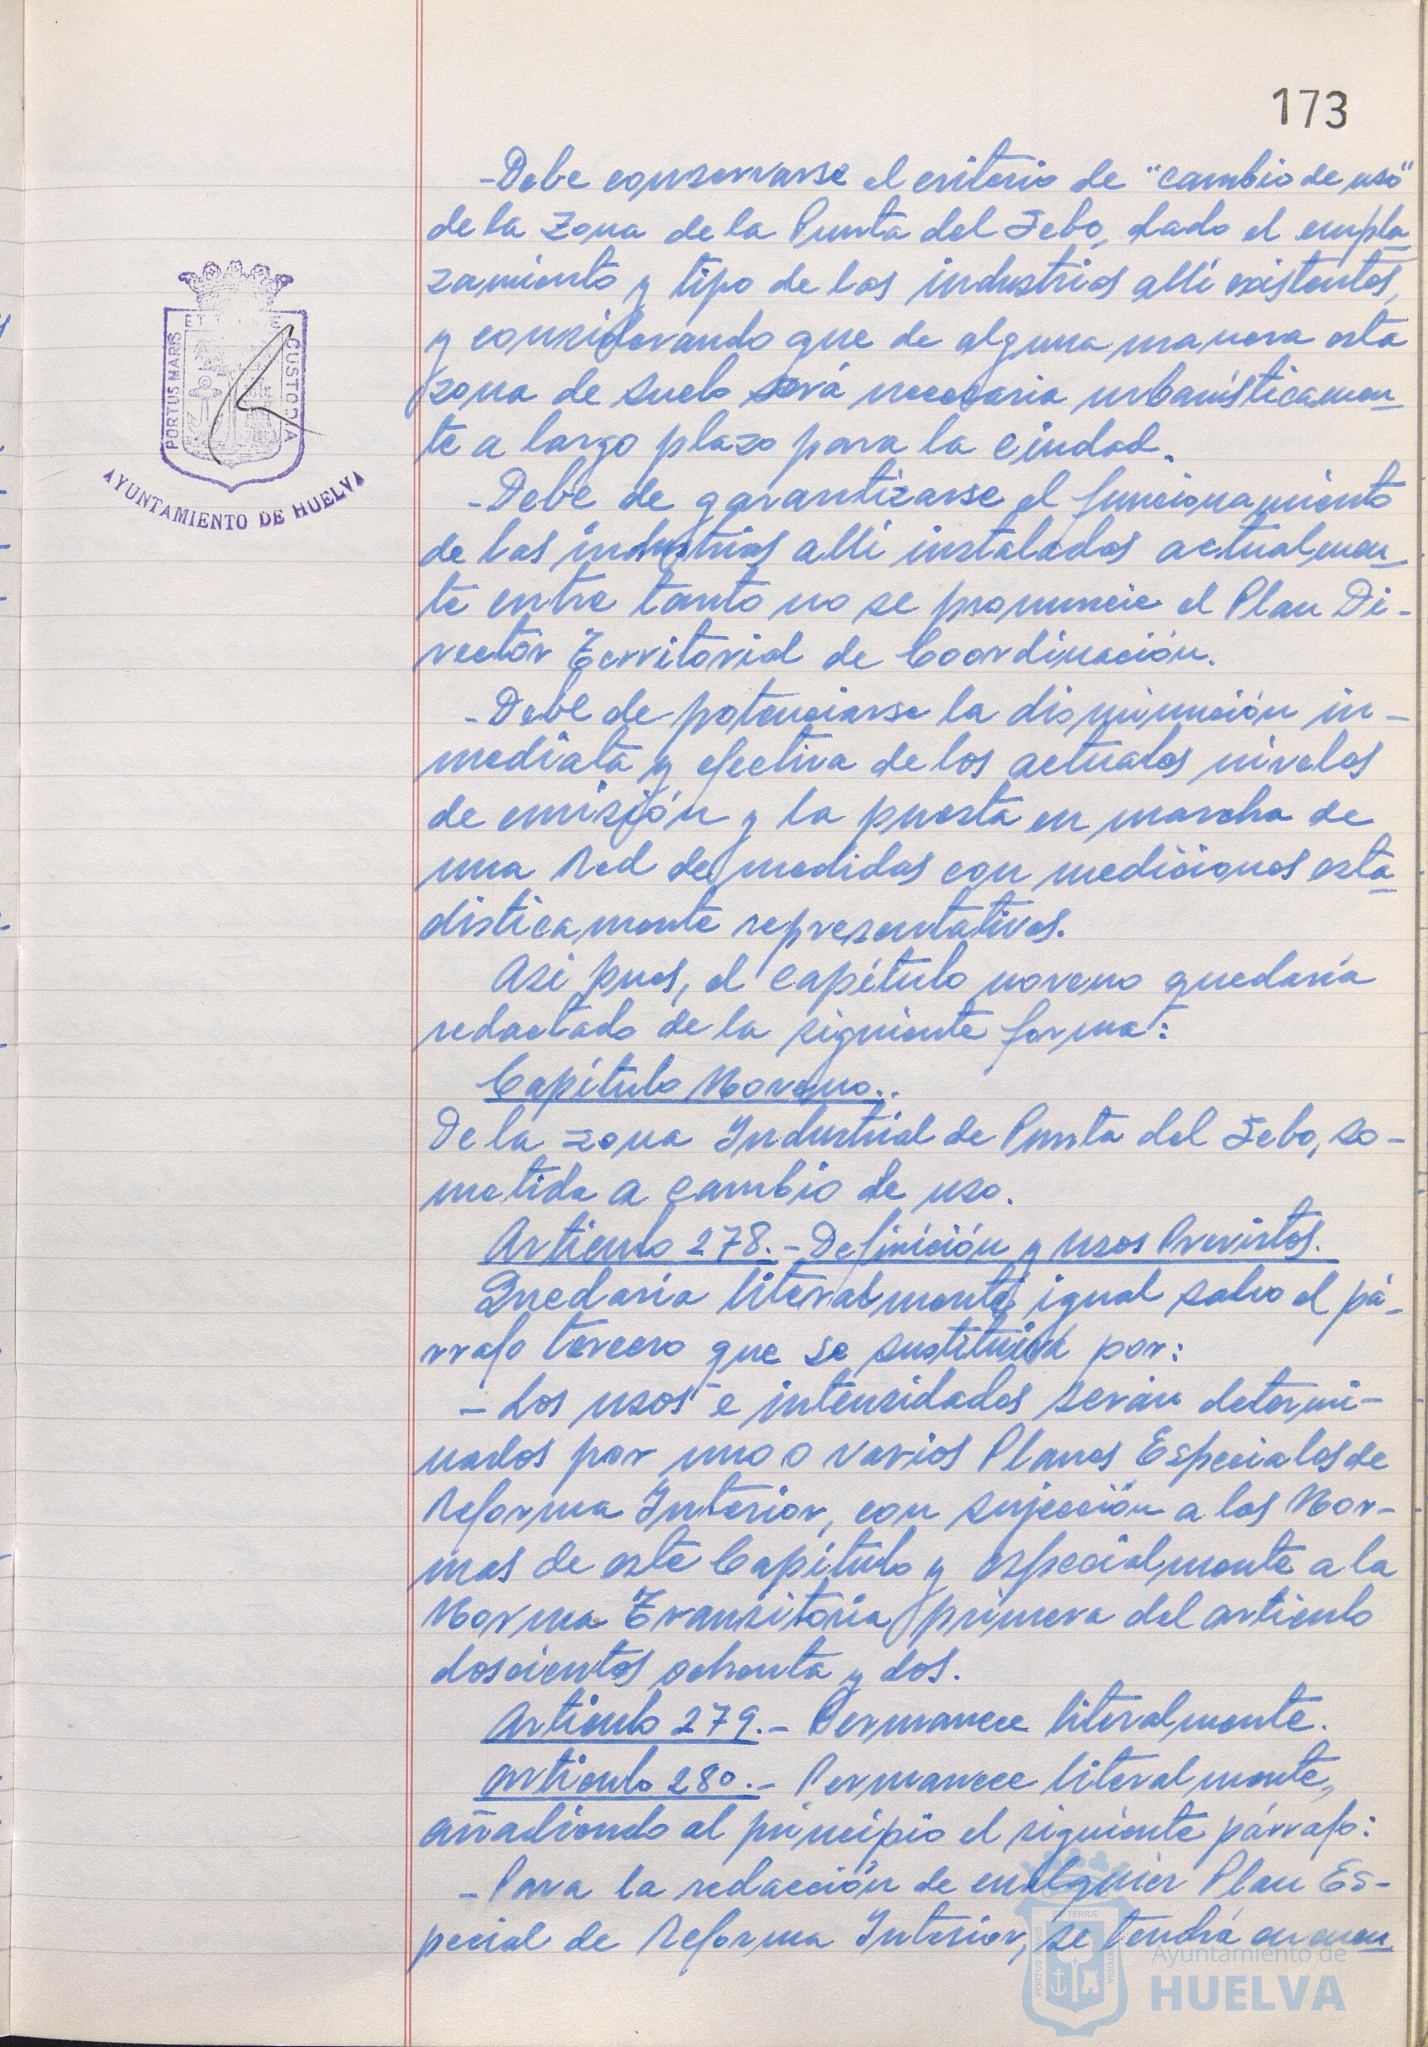 173
-Debe conservarse el criterio de "cambio de uso"
de la zona de la Punta del Sebo, dado el empla
zamiento y tipo de las industrias allí existentes,
y considerando que de alguna manera esta
zona de suelo será necesaria urbanísticamen-
te a largo plazo para la ciudad.
-Debe de garantizarse el funcionamiento
de las industrias allí instaladas actualmen-
te entre tanto no se pronuncie el Plan Di-
rector Territorial de Coordinación.
-Debe de potenciarse la disminución in-
mediata y efectiva de los actuales niveles
de emisión y la puesta en marcha de
una Red de medidas con mediciones esta
disticamente representativas.
Asi pues, el capítulo noveno quedaría
redactado de la siguiente forma:
Capítulo Noveno..
De la zona Industrial de Punta del Sebo, so-
metida a cambio de uso.
Articulo 278.- Definición y usos Previstos.
Quedaría literalmente igual salvo el pá-
rrafo tercero que se sustituirá por:
- Los usos e intensidades serán determi-
nados por uno o varios Planes Especiales de
Reforma Interior, con sujección a las Nor-
mas de este Capítulo y especialmente a la
Norma Transitoria primera del articulo
doscientos ochenta y dos.
Articulo 279.- Permanece literalmente.
Articulo 280.- Permanece literalmente,
añadiendo al principio el siguiente párrafo:
-Para la redacción de cualquier Plan Es-
pecial de Reforma Interior, se tendrá en cuen
PORTUS MARIS
ET TERRE
CUSTODIA
AYUNTAMIENTO DE HUELVA
PORTUS MARIS
ET TERRÆ
CUSTODIA
Ayuntamiento de
HUELVA